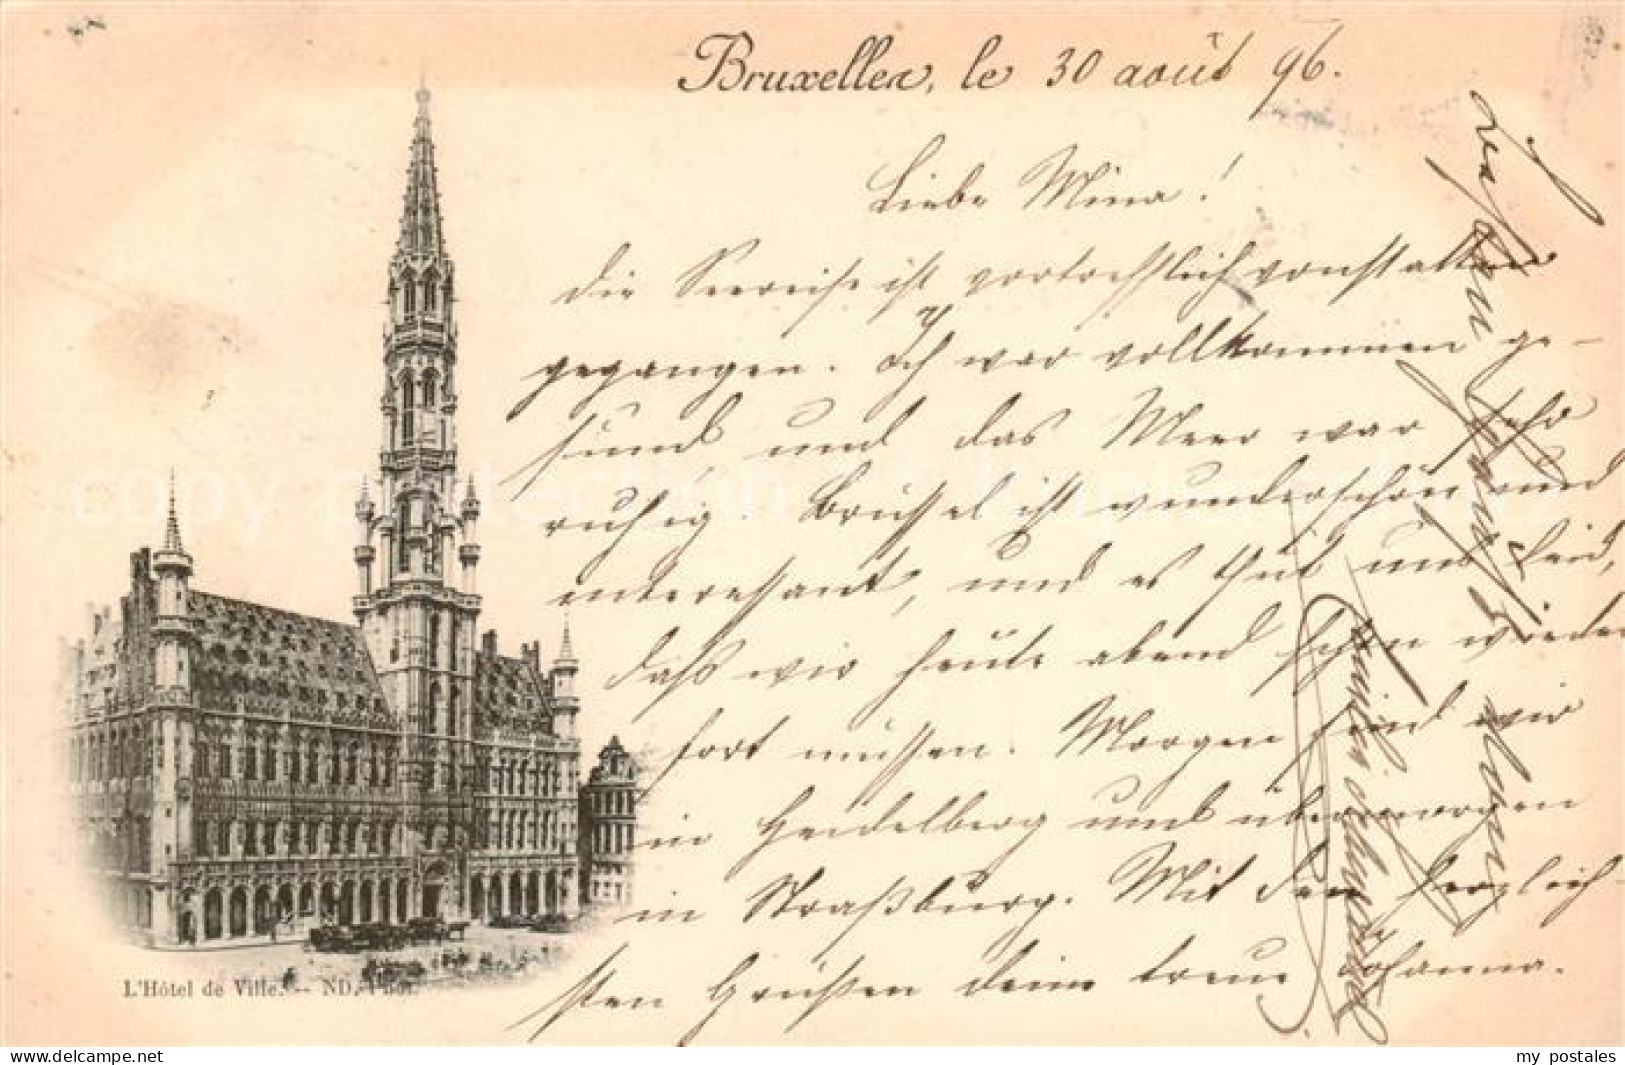 Bruxelles, le 30 août 96.
Liebe Mina!
Die Seereise ist vortrefflich vonstatten
gegangen. Ich war vollkommen ge-
sund und das Meer war sehr
ruhig. Brüssel ist wunderschön und
interessant, und es thut uns leid,
daß wir heute abend schon wieder
fort müssen. Morgen sind wir
in Heidelberg und übermorgen
in Straßburg. Mit den herzlich-
sten Grüßen deine treue Johanna.
L'Hôtel de Ville. -- ND. Phot.
my postales
www.delcampe.net